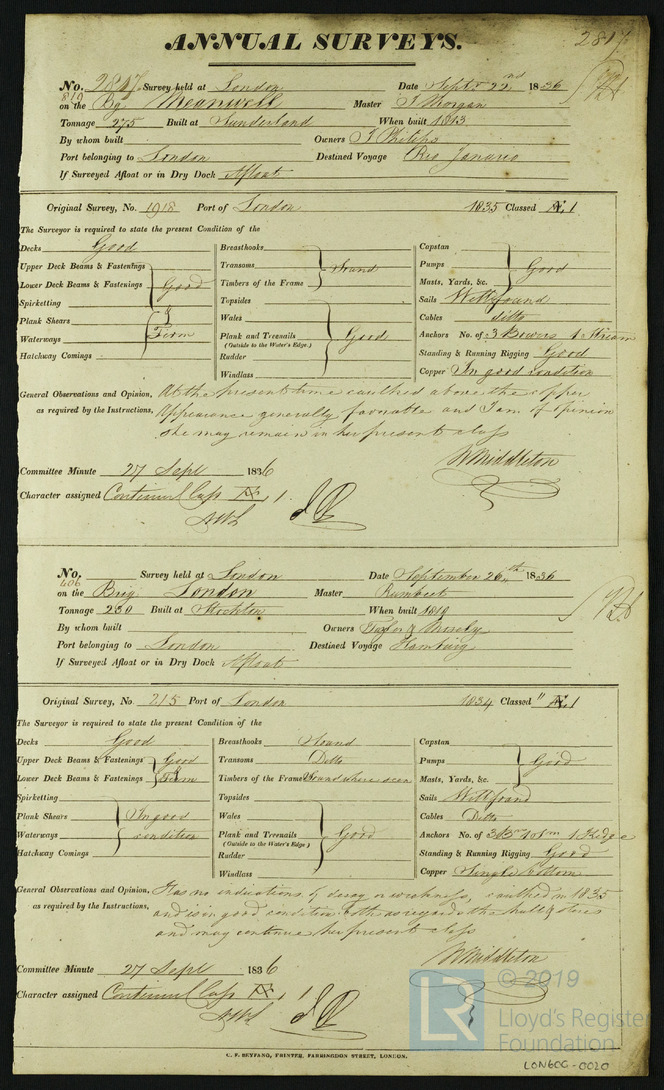 ANNUAL SURVEYS.
2817
No. 2817 Survey held at London Date Septr 22nd 1836
819
on the Bg Meanwell Master J Morgan
Tonnage 275 Built at Sunderland When built 1813
By whom built Owners J Philips
Port belonging to London Destined Voyage Rio Janario
If Surveyed Afloat or in Dry Dock Afloat
Original Survey, No. 1918 Port of London 1835 Classed Æ 1
The Surveyor is required to state the present Condition of the
Decks Good Breasthooks Capstan
Upper Deck Beams & Fastenings Transoms Sound Pumps Good
Lower Deck Beams & Fastenings Good Timbers of the Frame Masts, Yards, &c.
Spirketting & Topsides Sails Well found
Plank Shears Firm Wales Cables ditto
Waterways Plank and Treenails Good Anchors No. of 3 Bowers 1 Stream
(Outside to the Water's Edge.)
Hatchway Comings Rudder Standing & Running Rigging Good
Windlass Copper In good condition
General Observations and Opinion, At the present time caulked above the copper
as required by the Instructions, Appearance generally favorable and I am of opinion
she may remain in her present class
W Middleton
Committee Minute 27 Sept 1836
Character assigned Continued Class Æ 1
No. Survey held at London Date September 26th 1836
406
on the Brig London Master Rumbect
Tonnage 230 Built at Stockton When built 1819
By whom built Owners Taylor &
Port belonging to London Destined Voyage Hamburg
If Surveyed Afloat or in Dry Dock Afloat
Original Survey, No. 215 Port of London 1834 Classed " Æ 1
The Surveyor is required to state the present Condition of the
Decks Good Breasthooks Sound Capstan
Upper Deck Beams & Fastenings Good Transoms Ditto Pumps Good
Lower Deck Beams & Fastenings & Firm Timbers of the Frame Sound where seen Masts, Yards, &c.
Spirketting Topsides Sails Well found
Plank Shears In good Wales Cables Ditto
Waterways condition Plank and Treenails Good Anchors No. of 3 Br 1 Kedge
(Outside to the Water's Edge.)
Hatchway Comings Rudder Standing & Running Rigging Good
Windlass Copper Single bottom
General Observations and Opinion, Has no indications of decay or weakness, caulked in 1835
as required by the Instructions, and is in good condition both as regards the hull & stores
and may continue her present class
W Middleton
Committee Minute 27 Sept 1836
Character assigned Continued Class Æ 1
LR
© 2019
Lloyd's Register
Foundation
C. F. SEYFANG, PRINTER, FARRINGDON STREET, LONDON.
LON606-0020